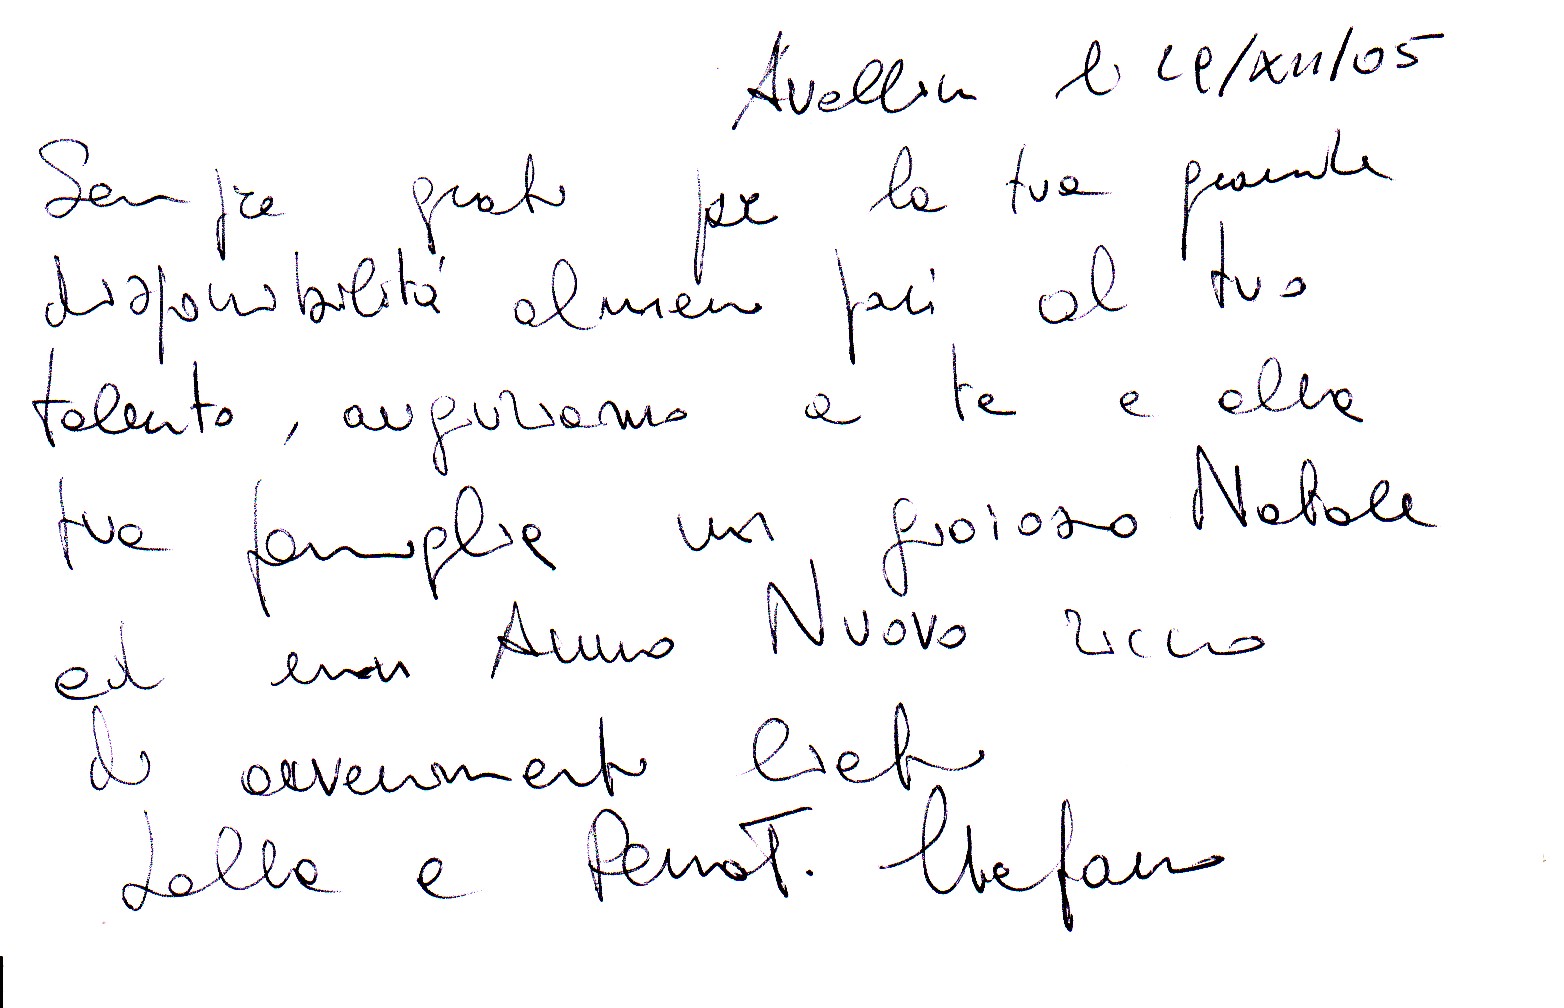 Avellino lì /XII/05
Sempre grati per la tua grande
disponibilità almeno pari al tuo
talento, auguriamo a te e alla
tua famiglia un gioioso Natale
ed un Anno Nuovo ricco
di avvenimenti lieti
Lella e Stefano